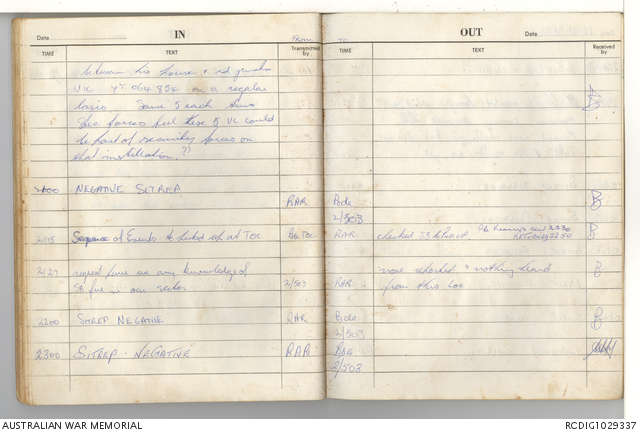 IN
Date
From
TIME
TEXT
Transmitted by
between his house & rd junction
VIC YT 064 852 on a regular
basis. Same 5 each time
The forces feel these 5 VC could
be part of security forces on
that installation.??
2100 NEGATIVE SITREP
RAR
2115 Sequence of Events to be picked up at TOC
TOC
2127 request have we any knowledge of
fire in our sector
2/503
2200 SITREP NEGATIVE RAR
2300 SITREP. NEGATIVE RAR
OUT
To
Date
TIME
TEXT
Received by
Bde
2/503
RAR
2230
2250
RAR
now reported & nothing heard
from this loc
Bde
2/503
Bde
2/503
AUSTRALIAN WAR MEMORIAL
RCDIG1029337